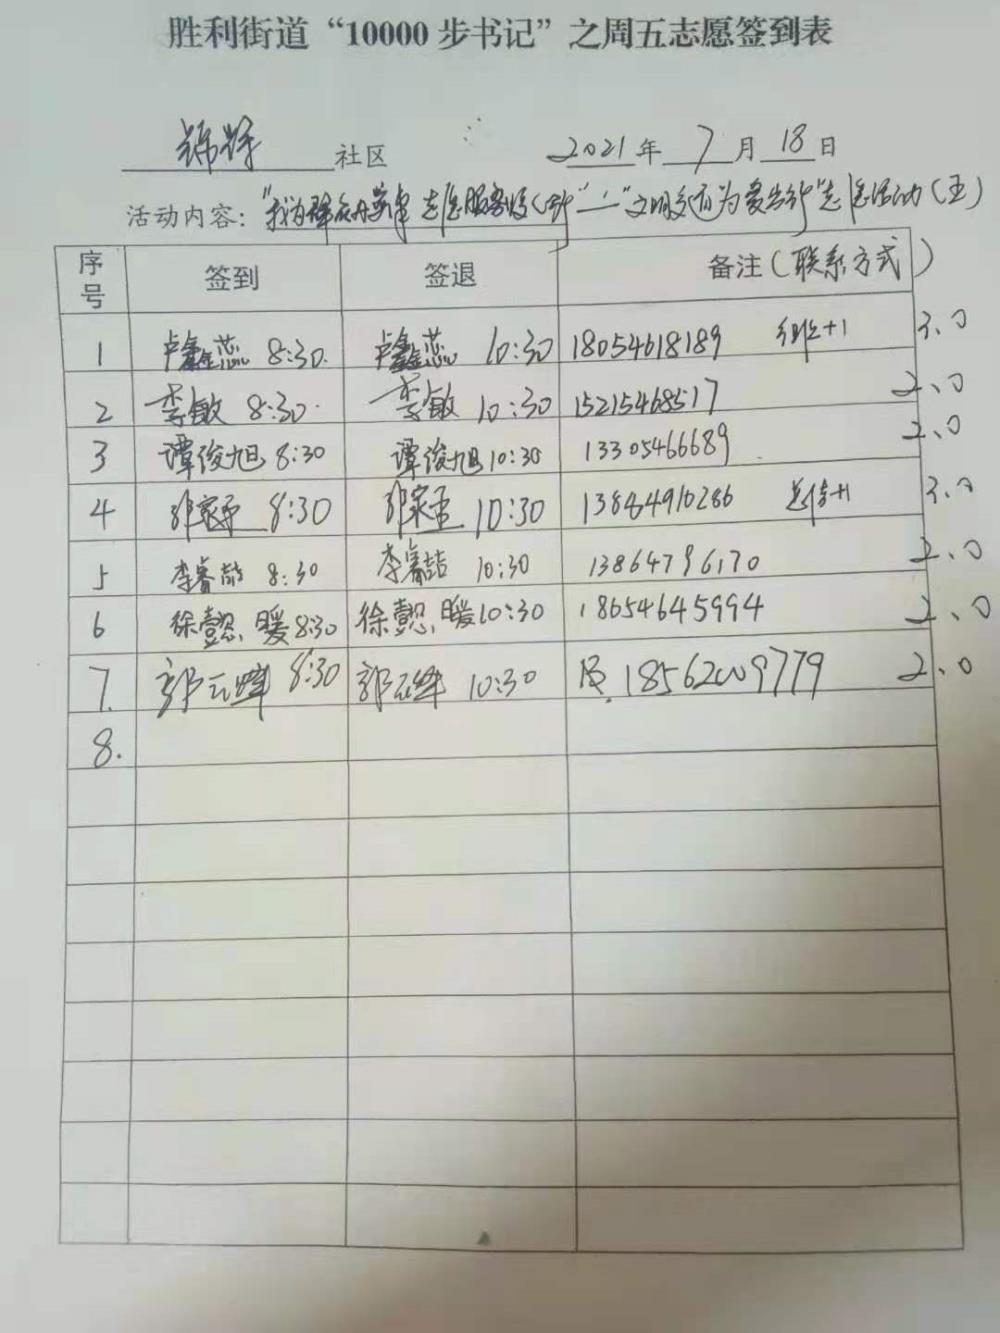 胜利街道“10000步书记”之周五志愿签到表
社区 2021年7月18日
活动内容：“我为群众办实事 志愿服务 ”——“文明交通为爱告行”志愿活动（五）
序号 签到 签退 备注（联系方式）
1 卢鑫蕊 8:30 卢鑫蕊 10:30 18054618189 +1 3.0
2 李敏 8:30 李敏 10:30 15215468517 2.0
3 谭俊旭 8:30 谭俊旭 10:30 13305466689 2.0
4 8:30 10:30 13864910286 +1 3.0
5 李睿喆 8:30 李睿喆 10:30 13864796170 2.0
6 徐懿暖 8:30 徐懿暖 10:30 18654645994 2.0
7. 郭 8:30 郭 10:30 18562009779 2.0
8.